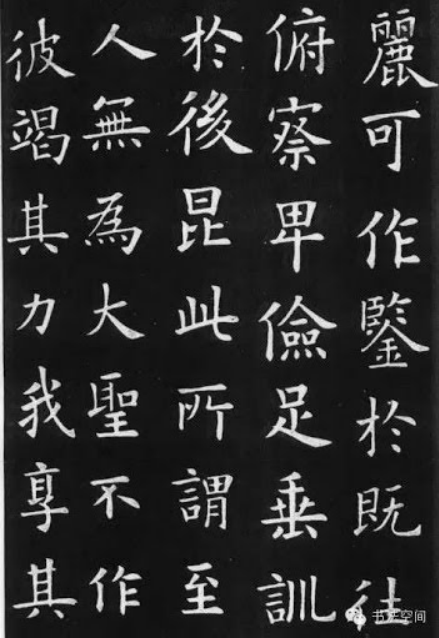 麗可作鑒於既往
俯察卑儉足垂訓
於後昆此所謂至
人無為大聖不作
彼竭其力我享其
书法空间